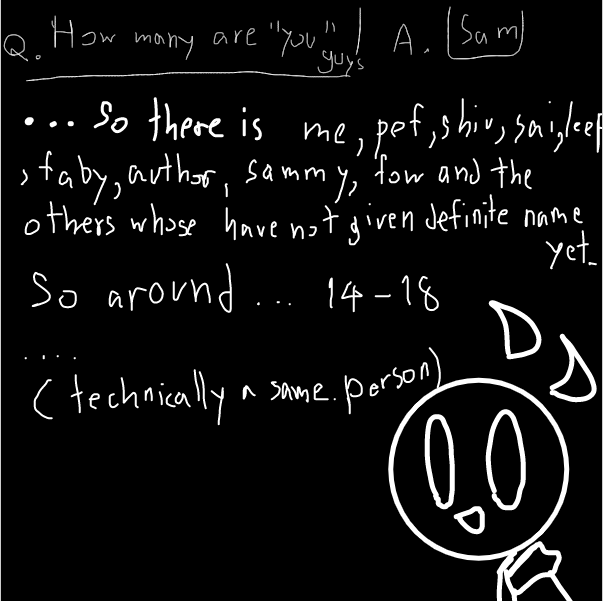 Q. How many are "you" guys! A. Sam
... So there is me, pef, shiv, sai, leef
, faby, author, sammy, fow and the
others whose have not given definite name
yet.
So around ... 14-18
....
(technically a same person)